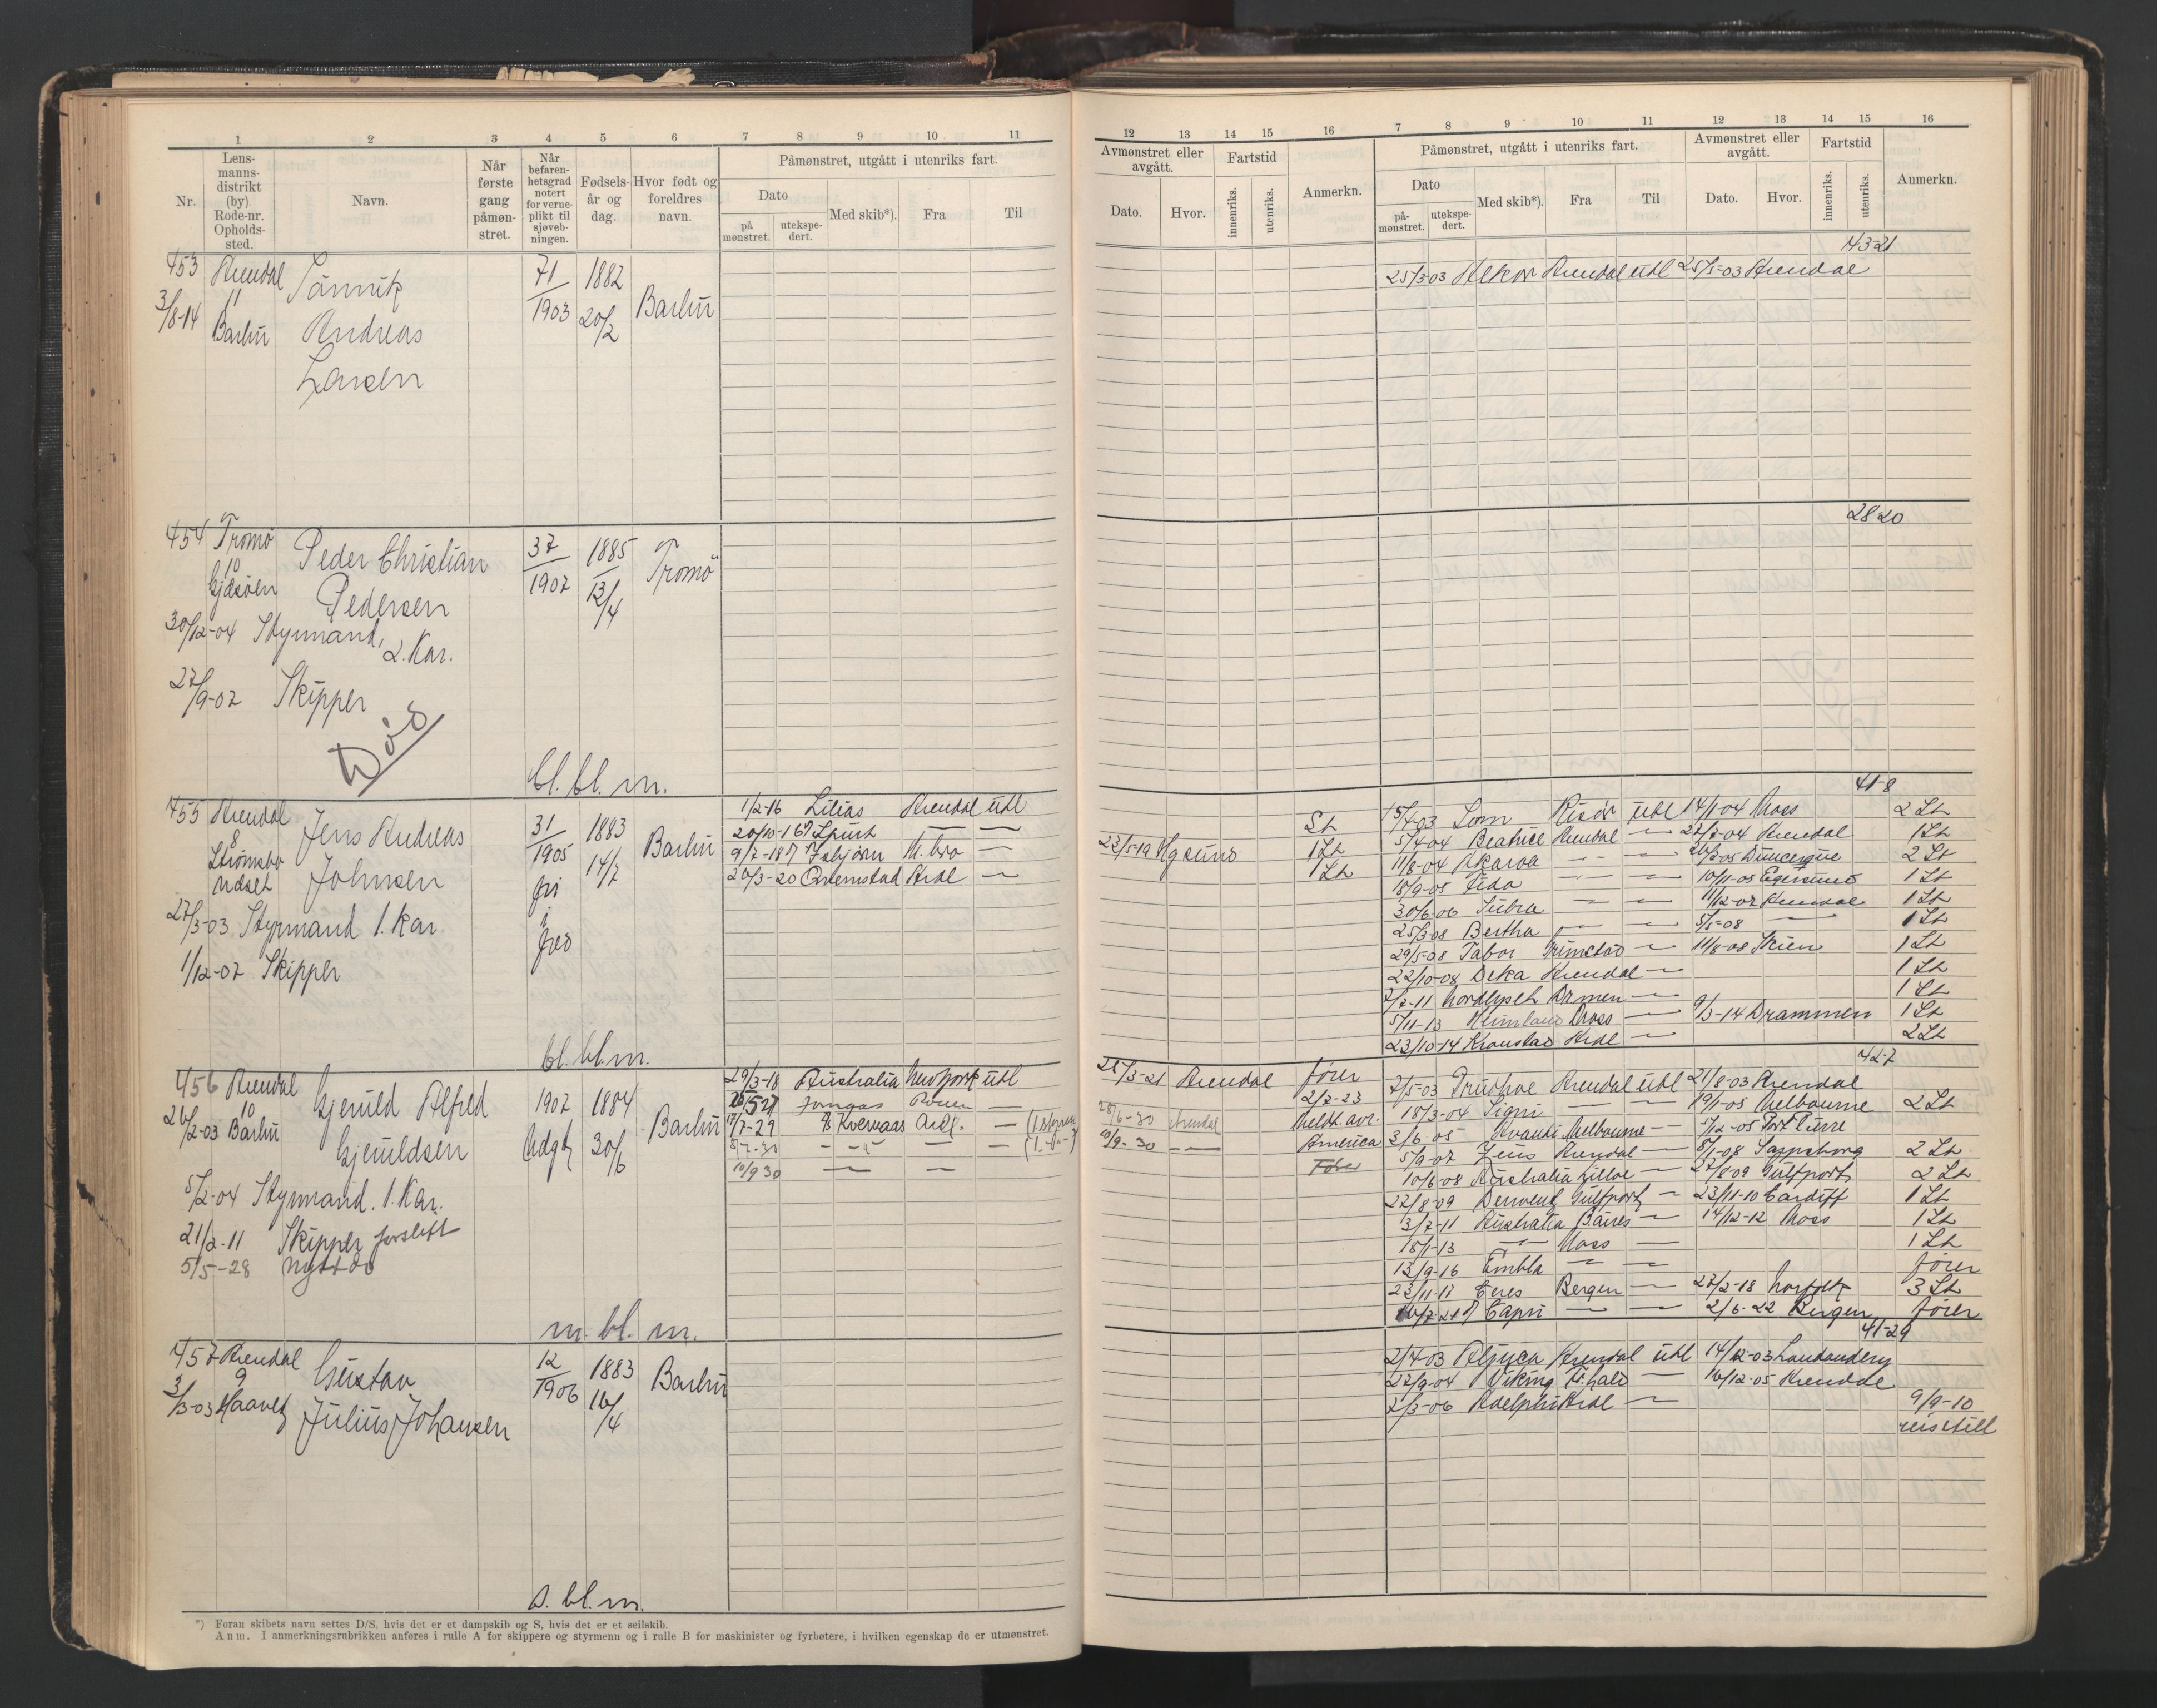 1 2 3 4 5 6 7 8 9 10 11
Nr.
Lens-
manns-
distrikt
(by).
Rode-nr.
Opholds-
sted.
Navn.
Når
første
gang
påmøn-
stret.
Når
befaren-
hetsgrad
notert
for verne-
plikt til
sjøveb-
ningen.
Fødsels-
år og
dag.
Hvor født og
foreldres
navn.
Påmønstret, utgått i utenriks fart.
Dato
på
mønstret.
utekspe-
dert.
Med skib*).
Fra
Til
453 Arendal
11
Barbu
3/8-14
Andreas
Larsen
71
1903
1882
20/2
Barbu
454 Tromø
10
Gjesøen
Peder Christian
Pedersen
37
1902
1885
13/4
Tromø
30/12-04 Styrmand, 2. Kar.
27/9-07 Skipper
Død
bl. bl. m.
455 Arendal
8
Strømsbo
Udset
Jens Andreas
Johnsen
31
1905
fri
i
fred
1883
14/7
Barbu
27/3-03 Styrmand 1. kar
1/12-07 Skipper
bl. bl. m.
1/2-16 Lilias Arendal utl
20/10-16 Spurt — —
9/7-18 Isbjørn M. bro —
20/3-20 Ornenstad Ardl —
456 Arendal
10
Barbu
26/2-03
Gjeruld Alfred
Gjeruldsen
1907
Udgt
1884
30/6
Barbu
5/2-04 Styrmand. 1. Kar.
21/2-11 Skipper forslift
5/5-28 nytt do
m. bl. m.
29/3-18 Australia Newport utl
17/7-29 Kvernaas Ardl. —
10/9 30 — —
457 Arendal
9
Haavet
3/3-03
Gustav
Julius Johansen
12
1906
1883
16/4
Barbu
s. bl. m.
*) Foran skibets navn settes D/S, hvis det er et dampskib og S, hvis det er et seilskib.
Anm. I anmerkningsrubrikken anføres i rulle A for skippere og styrmenn og i rulle B for maskinister og fyrbøtere, i hvilken egenskap de er utmønstret.
12 13 14 15 16 7 8 9 10 11 12 13 14 15 16
Avmønstret eller
avgått.
Dato.
Hvor.
Fartstid
innenriks.
utenriks.
Anmerkn.
Påmønstret, utgått i utenriks fart.
Dato
på-
mønstret.
utekspe-
dert.
Med skib*).
Fra
Til
Avmønstret eller
avgått.
Dato.
Hvor.
Fartstid
innenriks.
utenriks.
Anmerkn.
43-21
25/3-03 Alkor Arendal utl 25/5-03 Arendal
28-20
41-8
St 15/7-03 Lom Risør utl 14/1-04 Moss 2 St
22/5-19 Hgsund 1 St 5/4-04 Beatrice Arendal — 27/7-04 Arendal 1 St
1 St 11/8-04 Akaroa — — Dunkerque 2 St
18/9-05 Fida — — 10/11-05 Egersund 1 St
30/6-06 — — 11/12-07 Arendal 1 St
25/3-08 Bertha — — 5/5-08 — 1 St
29/5-08 Tabor Grimstad — 11/8-08 Skien 1 St
22/10-08 Deka Arendal — 1 St
7/7-11 Nordlyset Drmen — 1 St
5/11-13 Moss — 9/3-14 Drammen 1 St
23/10-14 Kronstad Ardl — 2 St
42-7
21/3-21 Arendal fører 2/5-03 Arendal utl 21/8-03 Arendal
28/6-30 Arendal 2/2-23 18/3-04 Signi — — 19/1-05 Melbourne 2 St
10/9-30 — America 3/6 05 Melbourne — 5/12-05 Port Pirie
Fører 5/9-07 Zeus Arendal — 8/1-08 Sarpsborg 2 St
10/6-08 Australia — 22/8-09 Gulfport 2 St
22/8-09 Derwent Gulfport — 23/11-10 Cardiff 1 St
3/7-11 Australia B.aires — 14/12-12 Moss 1 St
18/1-13 — Moss — 1 St
13/9-16 Embla — — fører
23/11-17 Ceres Bergen — 27/2-18 Norfolk 3 St
Capri — — 2/6-22 Bergen fører
41-29
2/4-03 Arendal utl 14/12-03
22/9-04 Viking Fr.hald — 16/12-05 Arendal
2/3-06 Adelphi Ardl — 9/9-10